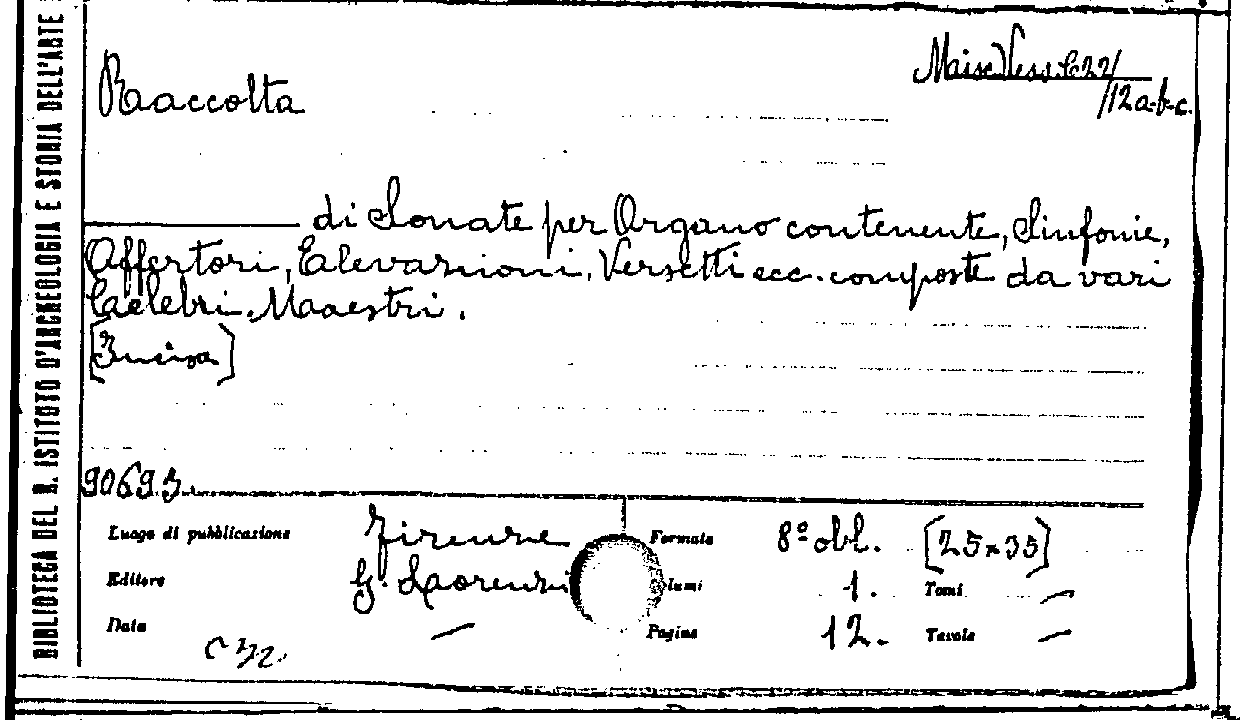 BIBLIOTECA DEL R. ISTITUTO D'ARCHEOLOGIA E STORIA DELL'ARTE
Raccolta
/12a-b-c.
di Sonate per Organo contenente, Sinfonie,
Offertori, Elevazioni, Versetti ecc. composte da vari
Celebri Maestri.
[Incisa]
90693
Luogo di pubblicazione Firenze Formato 8º obl. [25x35]
Editore G. Lorenzi lumi 1. Tomi —
Data — Pagine 12. Tavole —